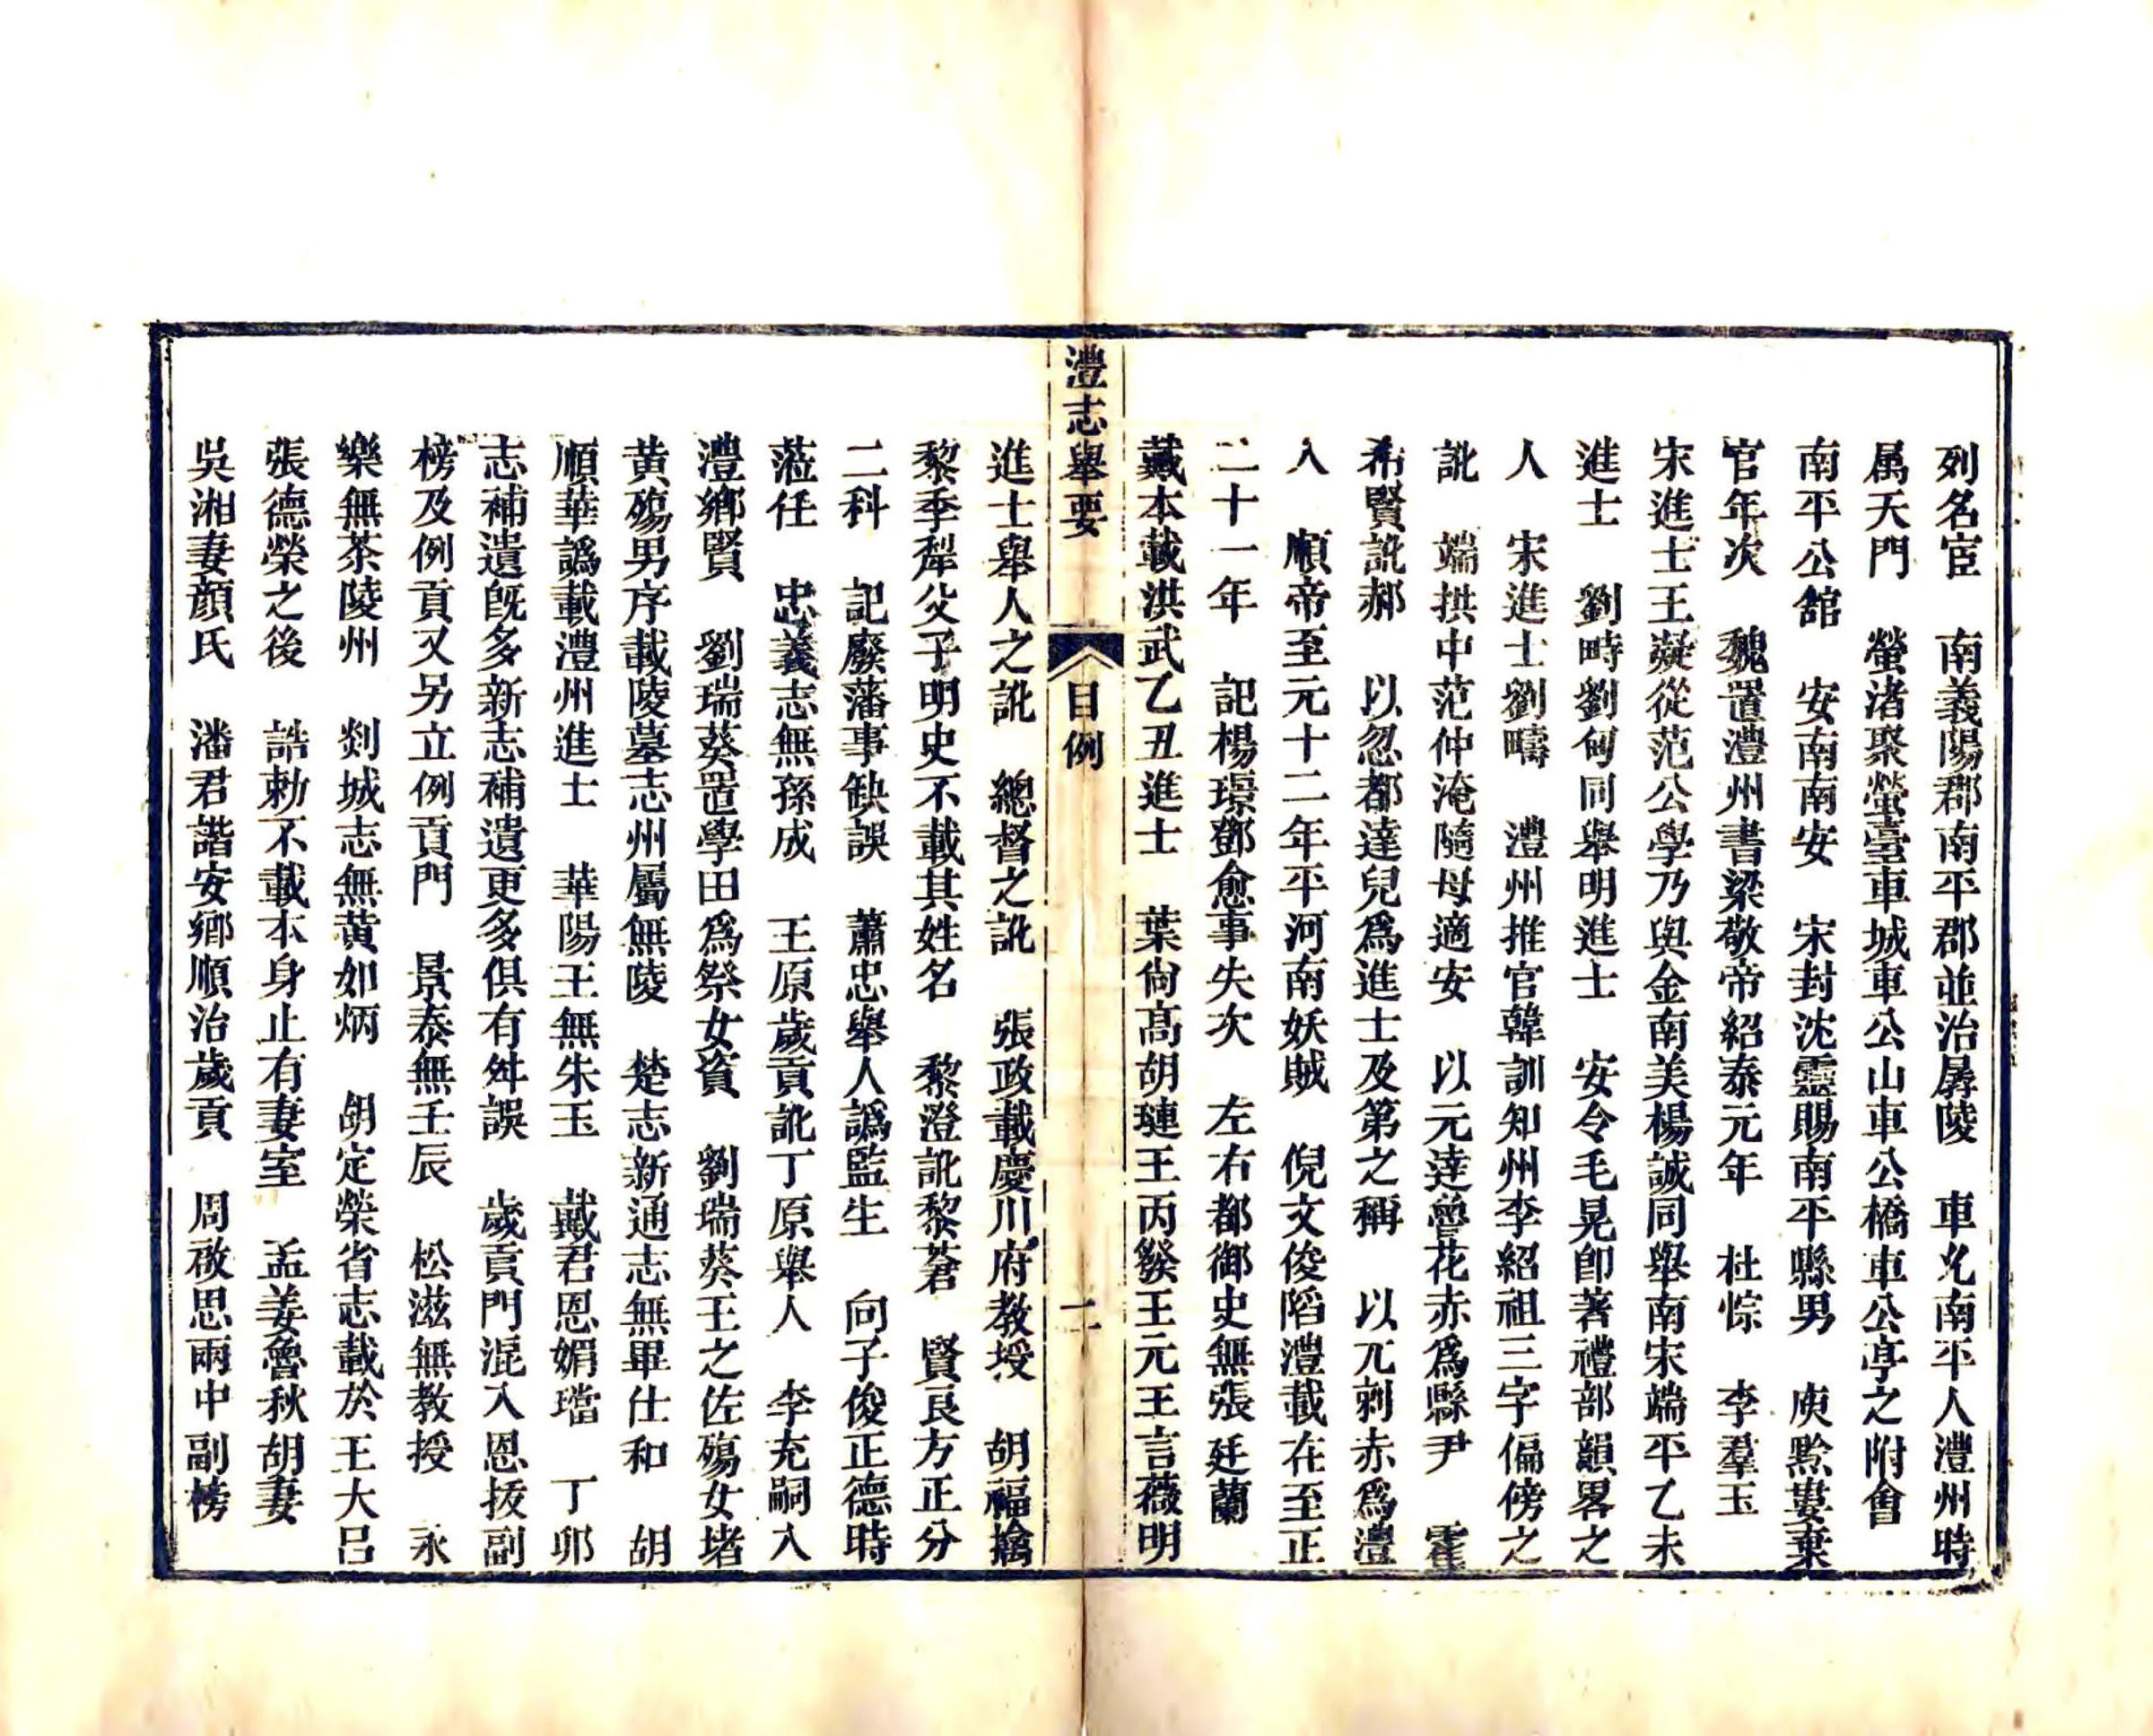 列名宦　南義陽郡南平郡並治孱陵　車允南平人澧州時
屬天門　螢渚聚螢臺車城車公山車公橋車公亭之附會
南平公舘　安南南安　宋封沈靈賜南平縣男　庾黔婁棄
官年次　魏置澧州書梁敬帝紹泰元年　杜悰　李羣玉
宋進士王凝從范公學乃與金南美楊誠同舉南宋端平乙未
進士　劉畤劉甸同舉明進士　安令毛晃卽著禮部韻畧之
人　宋進士劉疇　澧州推官韓訓知州李紹祖三字偏傍之
訛　端拱中范仲淹隨母適安　以元達魯花赤爲縣尹　霍
希賢訛郝　以忽都達兒爲進士及第之稱　以兀剌赤爲澧
入　順帝至元十二年平河南妖賊　倪文俊陷澧載在至正
二十一年　記楊璟鄧愈事失次　左右都御史無張廷蘭
戴本載洪武乙丑進士　葉尙高胡璉王丙發王元王言薇明
澧志舉要　目例　二
進士舉人之訛　總督之訛　張政載慶川府教授　胡福擒
黎季犛父子明史不載其姓名　黎澄訛黎蒼　賢良方正分
二科　記廢藩事缺誤　蕭忠舉人譌監生　向子俊正德時
蒞任　忠義志無孫成　王原歲貢訛丁原舉人　李充嗣入
澧鄉賢　劉瑞葵置學田爲祭女資　劉瑞葵王之佐殤女堵
黃殤男序載陵墓志州屬無陵　楚志新通志無畢仕和　胡
順華譌載澧州進士　華陽王無朱玉　戴君恩媚璫　丁卯
志補遺旣多新志補遺更多俱有舛誤　歲貢門混入恩拔副
榜及例貢又另立例貢門　景泰無壬辰　松滋無教授　永
樂無茶陵州　剡城志無黃如炳　胡定榮省志載於王大呂
張德榮之後　誥勅不載本身止有妻室　孟姜魯秋胡妻
吳湘妻顏氏　潘君諧安鄉順治歲貢　周啟思兩中副榜